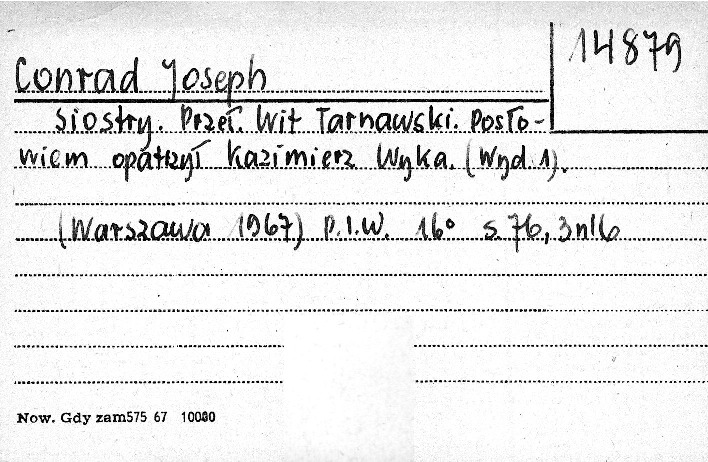 14879
Conrad Joseph
Siostry. Przeł. Wit Tarnawski. Posło-
wiem opatrzył Kazimierz Wyka. (Wyd. 1).
(Warszawa 1967) P.I.W. 16° s. 76, 3nlb
Now. Gdy zam575 67 10000